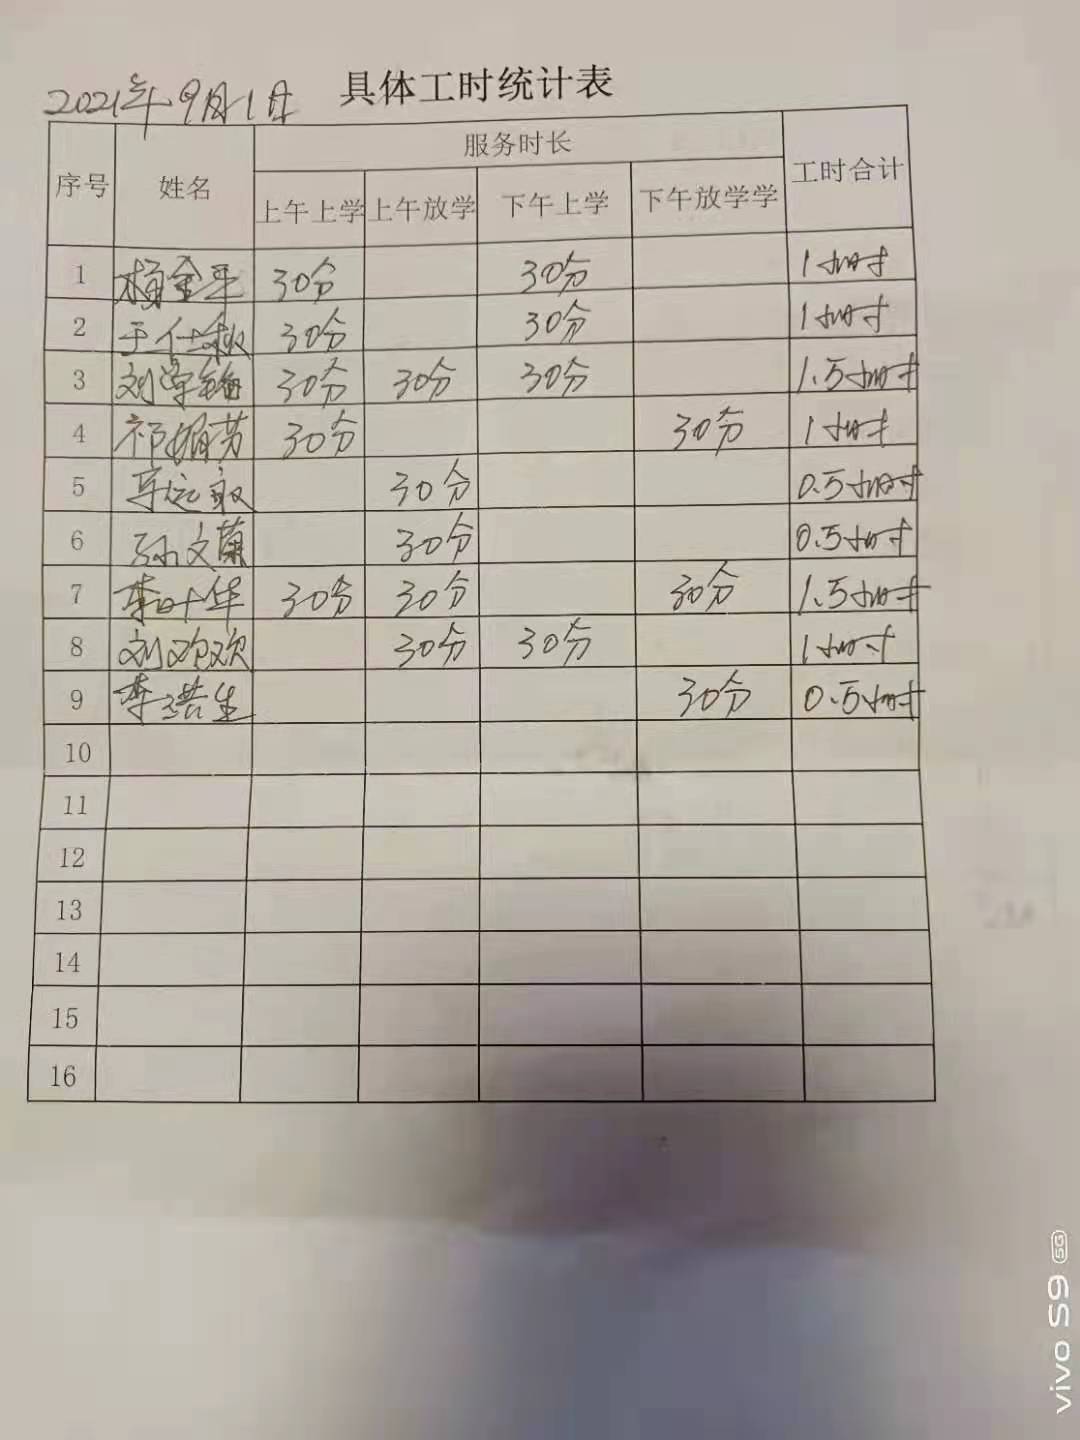 2021年9月1日 具体工时统计表
序号 姓名 服务时长 工时合计
上午上学 上午放学 下午上学 下午放学学
1 杨金平 30分 30分 1小时
2 于仕秋 30分 30分 1小时
3 刘学镅 30分 30分 30分 1.5小时
4 祁娟芳 30分 30分 1小时
5 30分 0.5小时
6 孙文菊 30分 0.5小时
7 李叶华 30分 30分 30分 1.5小时
8 刘欢欢 30分 30分 1小时
9 李浩生 30分 0.5小时
10
11
12
13
14
15
16
vivo S9 5G